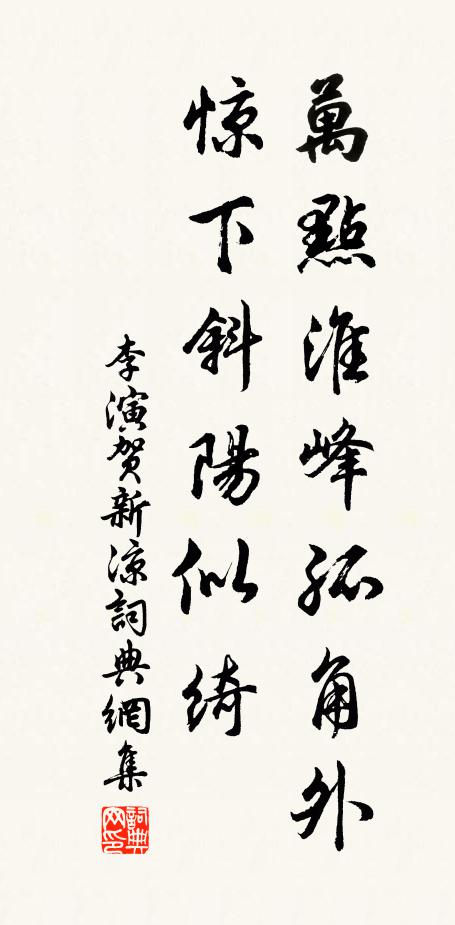 萬點淮峰孤角外
惊下斜陽似绮
李演贺新凉詞典網集
詞典网印